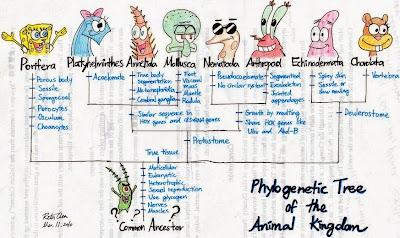 Porifera
Platyhelminthes
Annelida
Mollusca
Nematoda
Arthropod
Echinodermata
Chordata
Porous body
Sessile
Spongocoel
Porocytes
Osculum
Choanocytes
Acoelomate
True body
Segmentation
Metanephridia
Cerebral ganglia
Foot
Visceral
mass
Mantle
Radula
Pseudocoelomate
No circular system
Segmented
Exoskeleton
Jointed
appendages
Spiny skin
Sessile or
slow moving
Vertebra
Similar sequence in
Hox genes and
Growth by moulting
Share HOX genes like
Ubx and Abd-B
Deuterostome
Protostome
True tissue
Multicellular
Eukaryotic
Heterotrophic
Sexual reproduction
Use glycogen
Nerves
Muscles
? ? ? ?
Common Ancestor
Mar. 11, 2010
Phylogenetic Tree
of the
Animal Kingdom